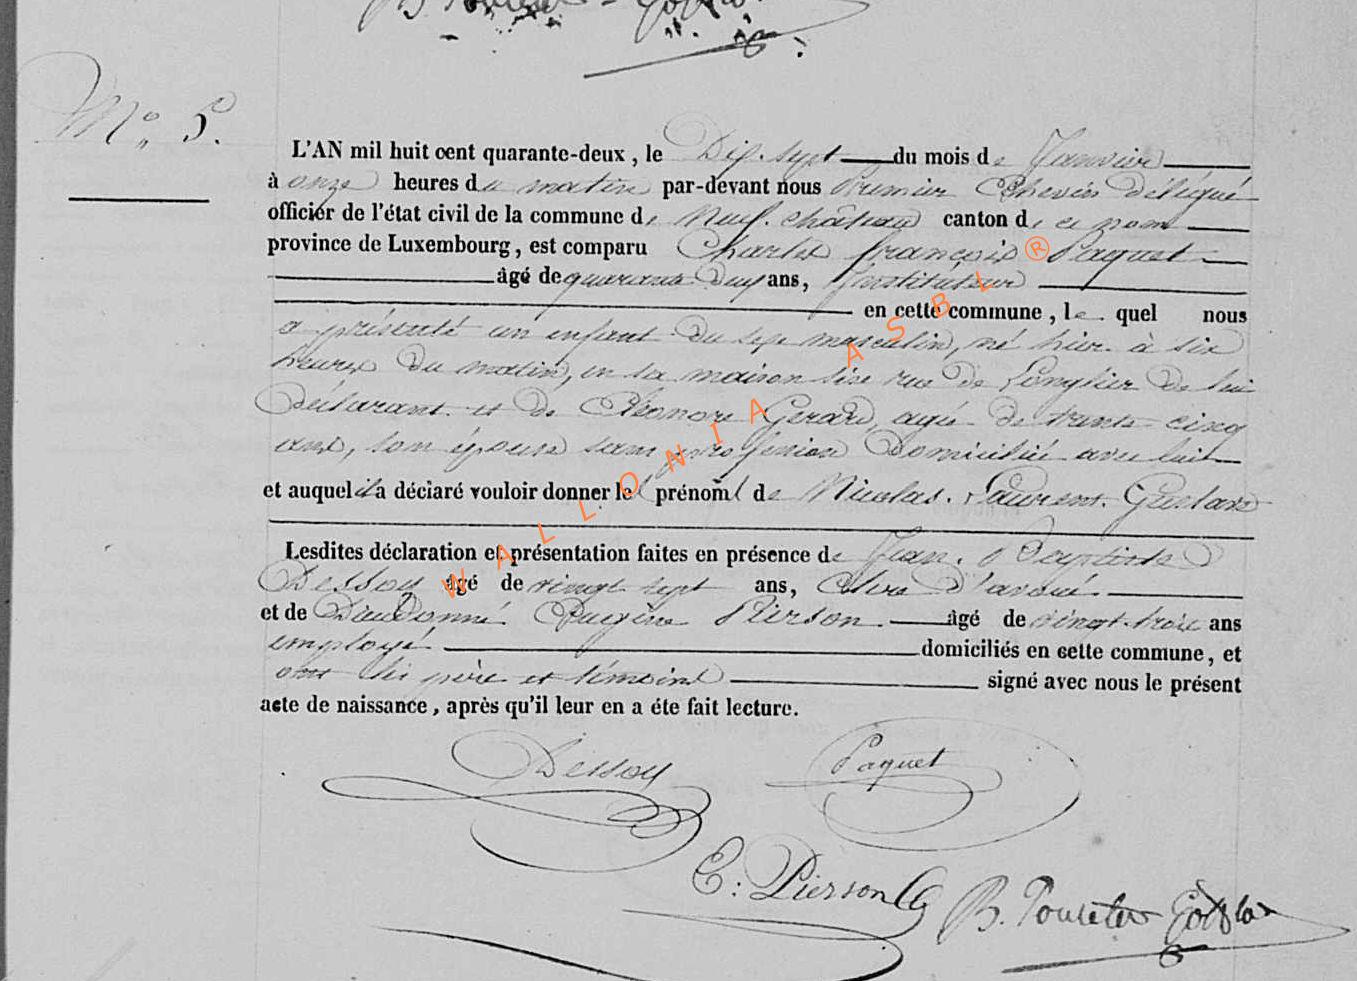 N° 5.
L'AN mil huit cent quarante-deux, le Dix-sept du mois de Janvier
à onze heures du matin par-devant nous Premier Echevin délégué
officier de l'état civil de la commune de Neuf-château canton de ce nom
province de Luxembourg, est comparu Charles françois Paquet
âgé de quarante Deux ans, Instituteur
en cette commune, le quel nous
a présenté un enfant Du sexe masculin, né hier à six
heures Du matin, en sa maison sise rue De Longlier De lui
Déclarant et de Eléonore Gerard, agée De trente cinq
ans, son épouse sans profession Domiciliée avec lui
et auquel il a déclaré vouloir donner les prénoms de Nicolas. Laurent. Gustave
Lesdites déclaration et présentation faites en présence de Jean. Baptiste
Dessoy âgé de vingt sept ans, Clerc D'avoué
et de Dieudonné Eugène Pierson âgé de vingt-trois ans
employé domiciliés en cette commune, et
ont les père et témoins signé avec nous le présent
acte de naissance, après qu'il leur en a éte fait lecture.
Dessoy Paquet
E: Pierson
B.
WALLONIA ASBL ®